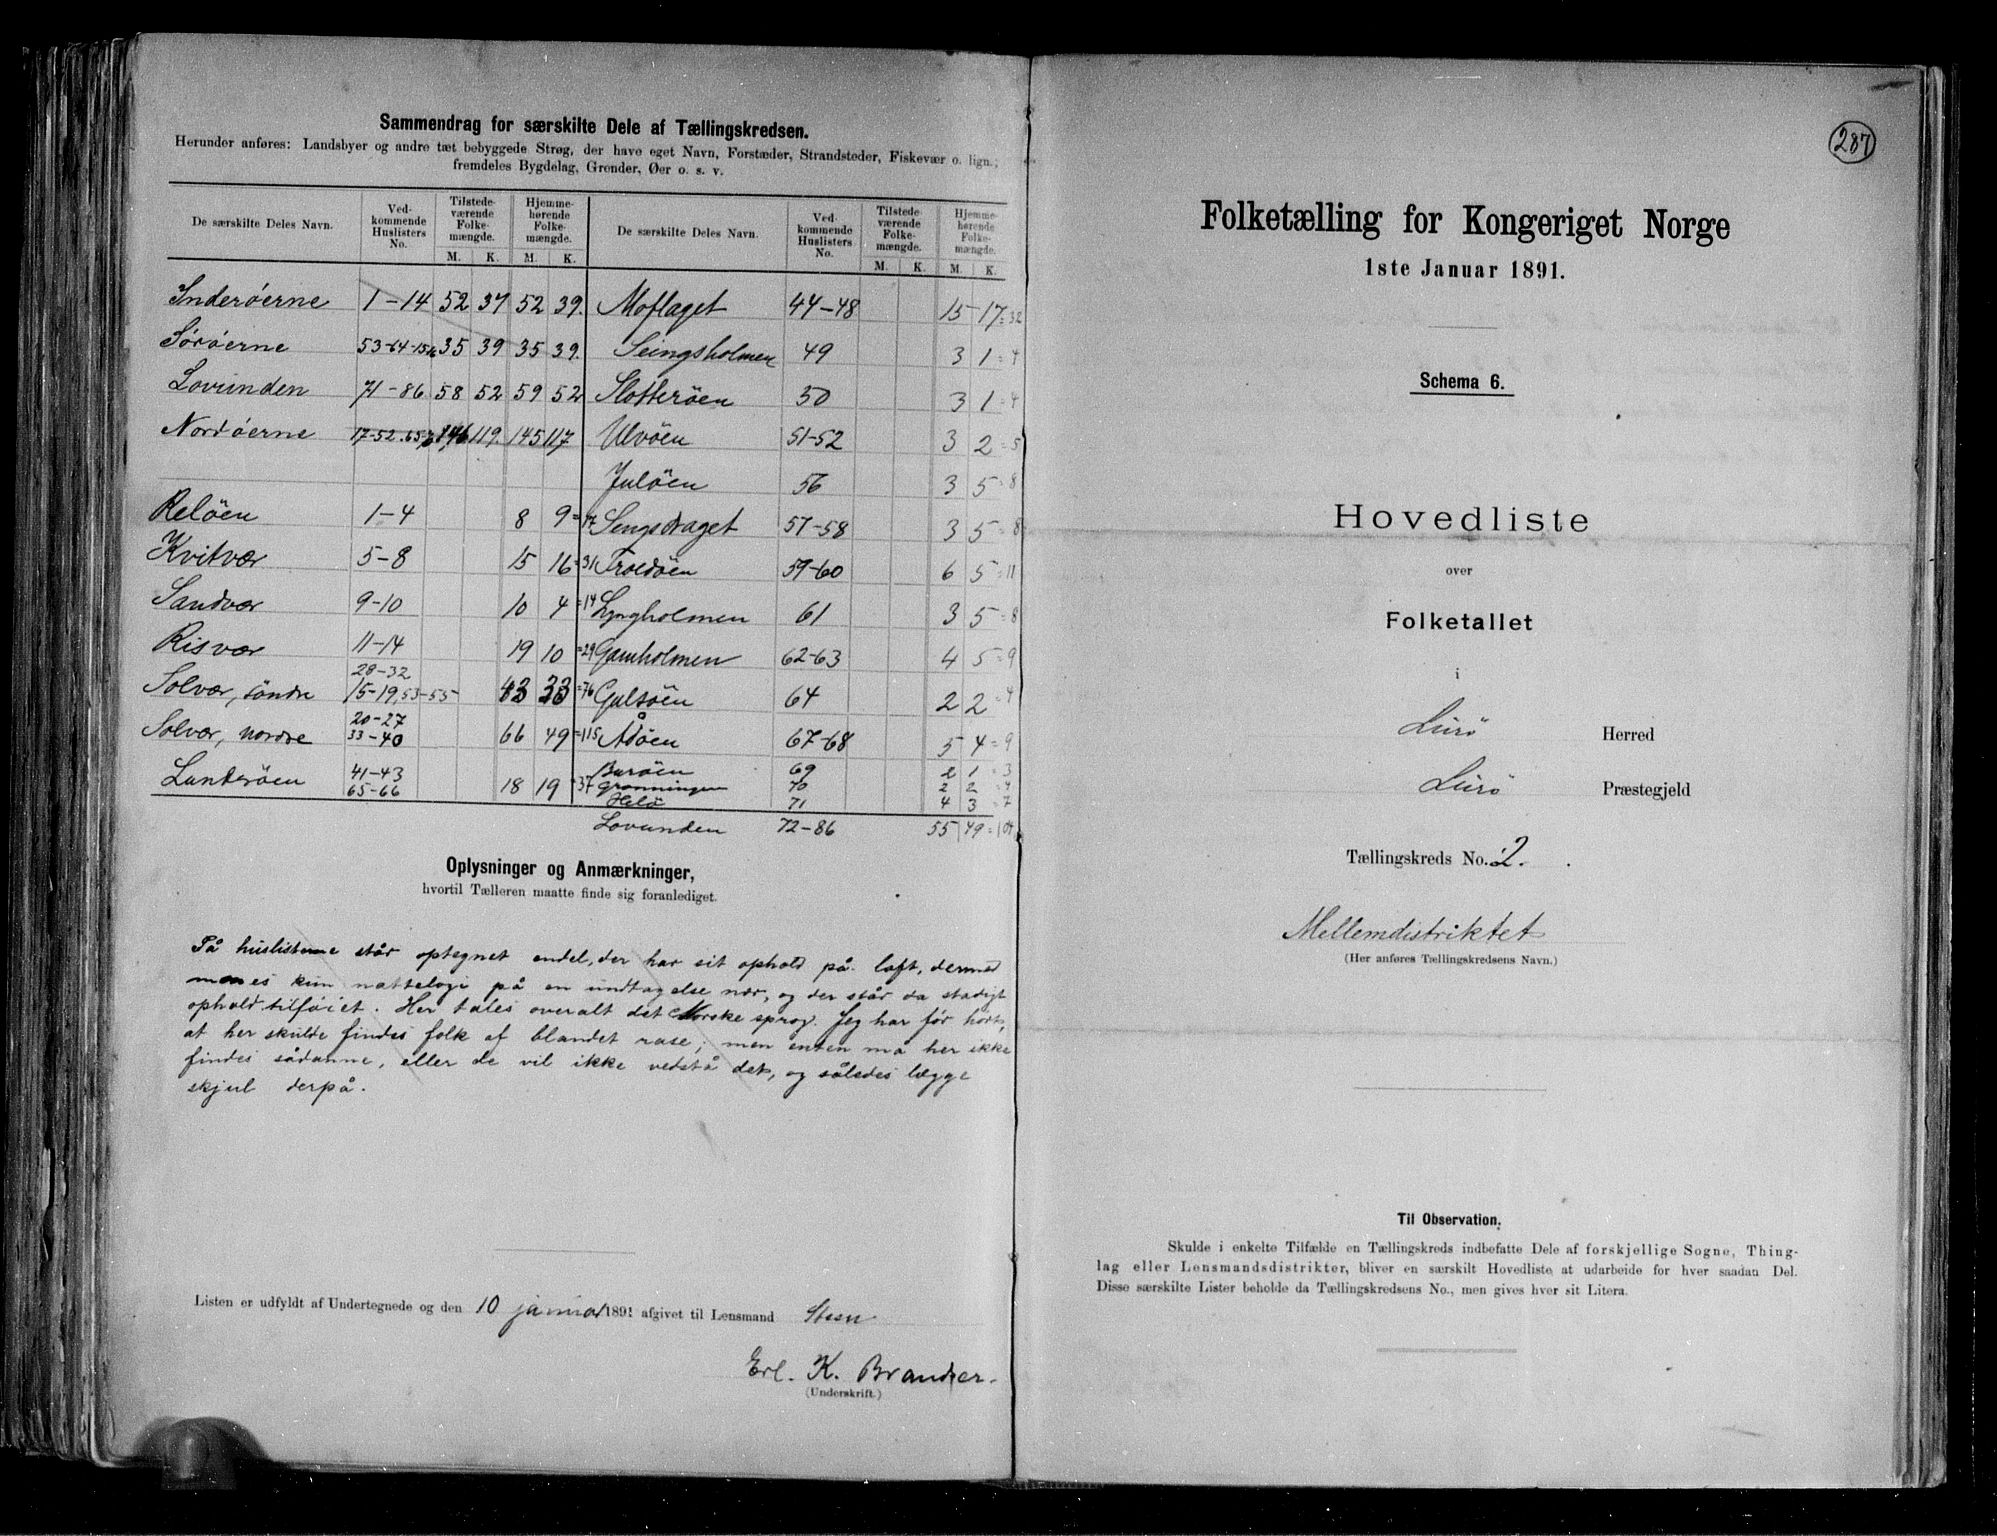 Sammendrag for særskilte Dele af Tællingskredsen.
Herunder anføres: Landsbyer og andre tæt bebyggede Strøg, der have eget Navn, Forstæder, Strandsteder, Fiskevær o. lign.;
fremdeles Bygdelag, Grender, Øer o. s. v.
De særskilte Deles Navn. Vedkommende Huslisters No. Tilstedeværende Folkemængde. M. K. Hjemmehørende Folkemængde. M. K.
Inderöerne 1-14 52 37 52 39.
Söröerne 53-64- 35 39 35 39.
Lovunden 71-86 58 52 59 52
Nordöerne 17-52. 146 119. 145 117
Relöen 1-4 8 9 =17
Kvitvær 5-8 15 16 =31
Sandvær 9-10 10 4 =14
Risvær 11-14 19 10 =29
28-32
Solvær, söndre 15-19, 53-55 43 33 =76
20-27
Solvær, nordre 33-40 66 49 =115
41-43
Lunderöen 65-66 18 19 =37
De særskilte Deles Navn. Vedkommende Huslisters No. Tilstedeværende Folkemængde. M. K. Hjemmehørende Folkemængde. M. K.
Moflaget 44-48 15-17=32
Seingsholmen 49 3 1=4
Slotteröen 50 3 1=4
Ulvöen 51-52 3 2=5
Julöen 56 3 5=8
Sengsdraget 57-58 3 5=8
Troldöen 59-60 6 5=11
Lyngholmen 61 3 5=8
Gamholmen 62-63 4 5=9
Gulsöen 64 2 2=4
Ådöen 67-68 5 4=9
Buröen 69 2 1=3
Grönningen 70 2 2=4
Helö 71 4 3=7
Lovunden 72-86 55 49=104
Oplysninger og Anmærkninger,
hvortil Tælleren maatte finde sig foranlediget.
På huslisterne står optegnet endel, der har sit ophold på loft, dermed
menes kun natteligi på en undtagelse nær, og der står da stadigt
ophold tilföiet. Her tales overalt det Norske sprog. Jeg har för hört,
at her skulde findes folk af blandet rase; men enten må her ikke
findes sådanne, eller de vil ikke vedstå det, og således lægge
skjul derpå.
Listen er udfyldt af Undertegnede og den 10 januar 1891 afgivet til Lensmand Steen
Erl. K. Brandser.
(Underskrift.)
287
Folketælling for Kongeriget Norge
1ste Januar 1891.
Schema 6.
Hovedliste
over
Folketallet
i
Lurö Herred
Lurö Præstegjeld
Tællingskreds No. 2.
Mellemdistriktet
(Her anføres Tællingskredsens Navn.)
Til Observation.
Skulde i enkelte Tilfælde en Tællingskreds indbefatte Dele af forskjellige Sogne, Thing-
lag eller Lensmandsdistrikter, bliver en særskilt Hovedliste at udarbeide for hver saadan Del.
Disse særskilte Lister beholde da Tællingskredsens No., men gives hver sit Litera.